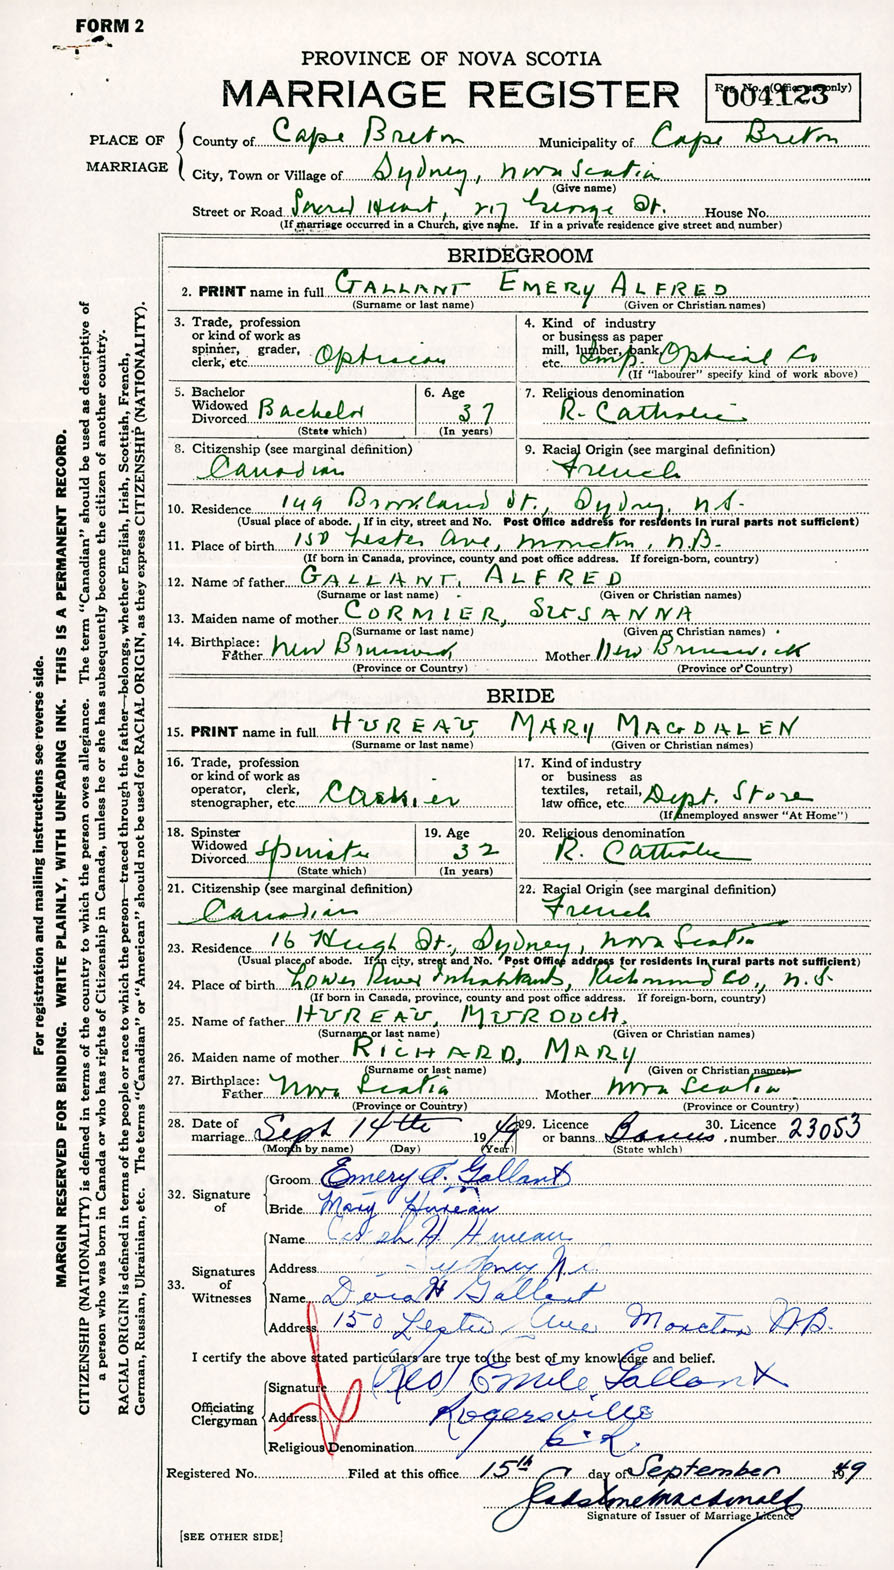 FORM 2
PROVINCE OF NOVA SCOTIA
MARRIAGE REGISTER
Reg. No. (Office use only)
004123
PLACE OF MARRIAGE
County of Cape Breton Municipality of Cape Breton
City, Town or Village of Sydney, Nova Scotia
(Give name)
Street or Road Sacred Heart, 217 George St. House No.
(If marriage occurred in a Church, give name. If in a private residence give street and number)
BRIDEGROOM
2. PRINT name in full GALLANT EMERY ALFRED
(Surname or last name) (Given or Christian names)
3. Trade, profession or kind of work as spinner, grader, clerk, etc. Optician
4. Kind of industry or business as paper mill, lumber, bank, etc. Imp. Optical Co
(If "labourer" specify kind of work above)
5. Bachelor Widowed Divorced Bachelor
(State which)
6. Age 37
(In years)
7. Religious denomination
R. Catholic
8. Citizenship (see marginal definition)
Canadian
9. Racial Origin (see marginal definition)
French
10. Residence 149 Brookland St., Sydney, N.S.
(Usual place of abode. If in city, street and No. Post Office address for residents in rural parts not sufficient)
11. Place of birth 150 Lester Ave, Moncton, N.B.
(If born in Canada, province, county and post office address. If foreign-born, country)
12. Name of father GALLANT, ALFRED
(Surname or last name) (Given or Christian names)
13. Maiden name of mother CORMIER, SUSANNA
(Surname or last name) (Given or Christian names)
14. Birthplace: Father New Brunswick Mother New Brunswick
(Province or Country) (Province or Country)
BRIDE
15. PRINT name in full HUREAU, MARY MAGDALEN
(Surname or last name) (Given or Christian names)
16. Trade, profession or kind of work as operator, clerk, stenographer, etc. Cashier
17. Kind of industry or business as textiles, retail, law office, etc. Dept. Store
(If unemployed answer "At Home")
18. Spinster Widowed Divorced Spinster
(State which)
19. Age 32
(In years)
20. Religious denomination
R. Catholic
21. Citizenship (see marginal definition)
Canadian
22. Racial Origin (see marginal definition)
French
23. Residence 16 Hugh St., Sydney, Nova Scotia
(Usual place of abode. If in city, street and No. Post Office address for residents in rural parts not sufficient)
24. Place of birth Lower River Inhabitants, Richmond Co., N.S.
(If born in Canada, province, county and post office address. If foreign-born, country)
25. Name of father HUREAU, MURDOCH.
(Surname or last name) (Given or Christian names)
26. Maiden name of mother RICHARD, MARY
(Surname or last name) (Given or Christian names)
27. Birthplace: Father Nova Scotia Mother Nova Scotia
(Province or Country) (Province or Country)
28. Date of marriage Sept 14th 1949
(Month by name) (Day) (Year)
29. Licence or banns Banns
(State which)
30. Licence number 23053
32. Signature of
Groom Emery A. Gallant
Bride Mary Hureau
33. Signatures of Witnesses
Name H. Hureau
Address Sydney N.S.
Name Dora H Gallant
Address 150 Lester Ave Moncton N.B.
I certify the above stated particulars are true to the best of my knowledge and belief.
Officiating Clergyman
Signature (Rev) Emile Gallant
Address Rogersville
Religious Denomination
Registered No. Filed at this office 15th day of September 1949
Gladstone Macdonald
Signature of Issuer of Marriage Licence
[SEE OTHER SIDE]
For registration and mailing instructions see reverse side.
MARGIN RESERVED FOR BINDING. WRITE PLAINLY, WITH UNFADING INK. THIS IS A PERMANENT RECORD.
CITIZENSHIP (NATIONALITY) is defined in terms of the country to which the person owes allegiance. The term "Canadian" should be used as descriptive of
a person who was born in Canada or who has rights of Citizenship in Canada, unless he or she has subsequently become the citizen of another country.
RACIAL ORIGIN is defined in terms of the people or race to which the person—traced through the father—belongs, whether English, Irish, Scottish, French,
German, Russian, Ukrainian, etc. The terms "Canadian" or "American" should not be used for RACIAL ORIGIN, as they express CITIZENSHIP (NATIONALITY).